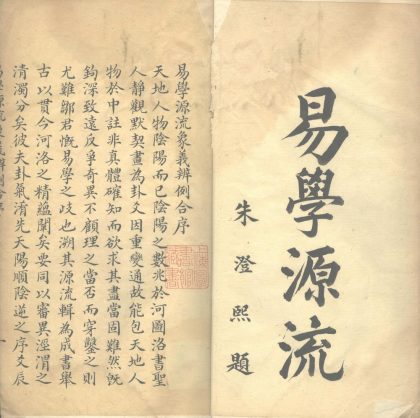 易學源流
朱澄熙題
易學源流象義辨例合序
天地人物陰陽而已陰陽之數兆於河圖洛書聖
人靜觀默契畫為卦爻因重變通故能包天地人
物於中註非真體確知而欲求其盡當固難然既
鉤深致遠反爭奇異不顧理之當否而穿鑿之則
尤難鄒君慨易學之歧也溯其源流輯為成書舉
古以貫今河洛之精蘊闡矣要同以審異涇渭之
清濁分矣彼夫卦氣淆先天陽順陰逆之序爻辰